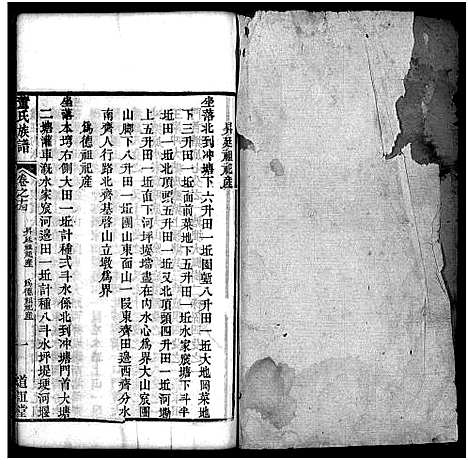 昇廷祖祀產
坐落北到冲塘下六升田一坵園塱八升田一坵大地岡菜地
下三升田一坵面前菜地下五升田一坵水家宸塘下斗半
一坵田一坵北頂頭五升田一坵又北頂頭四升田一坵河塝
上五升田一坵下河坪塝墻盡在內水心爲界大山宸團
山脚下八升田一坵團山東面山一叚東齊田邉西齊分水
南齊人行路北齊基啓山立墩爲界
爲德祖祀產
坐落本塆右側大田一坵計種弍斗水係北到冲塘門首大塘
二塘灌車溉水家宸河邉田一坵計種八斗水坪堤埂河堰
氏族譜
卷之十四
昇廷祖祀產
爲德祖祀產
一
道祖堂